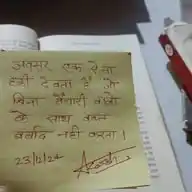 अवसर एक ऐसा
हरी देवता है जो
बिना तैयारी वालो
के साथ वक्त
बर्बाद नही करता।
23/2/24